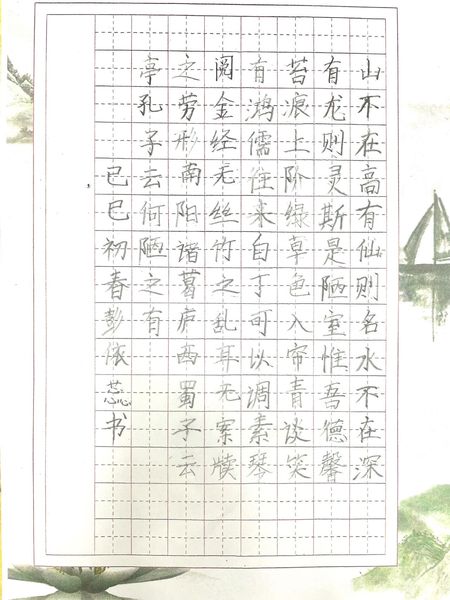 山不在高有仙则名水不在深
有龙则灵斯是陋室惟吾德馨
苔痕上阶绿草色入帘青谈笑
有鸿儒往来白丁可以调素琴
阅金经无丝竹之乱耳无案牍
之劳形南阳诸葛庐西蜀子云
亭孔子去何陋之有
已巳初春彭依蕊书